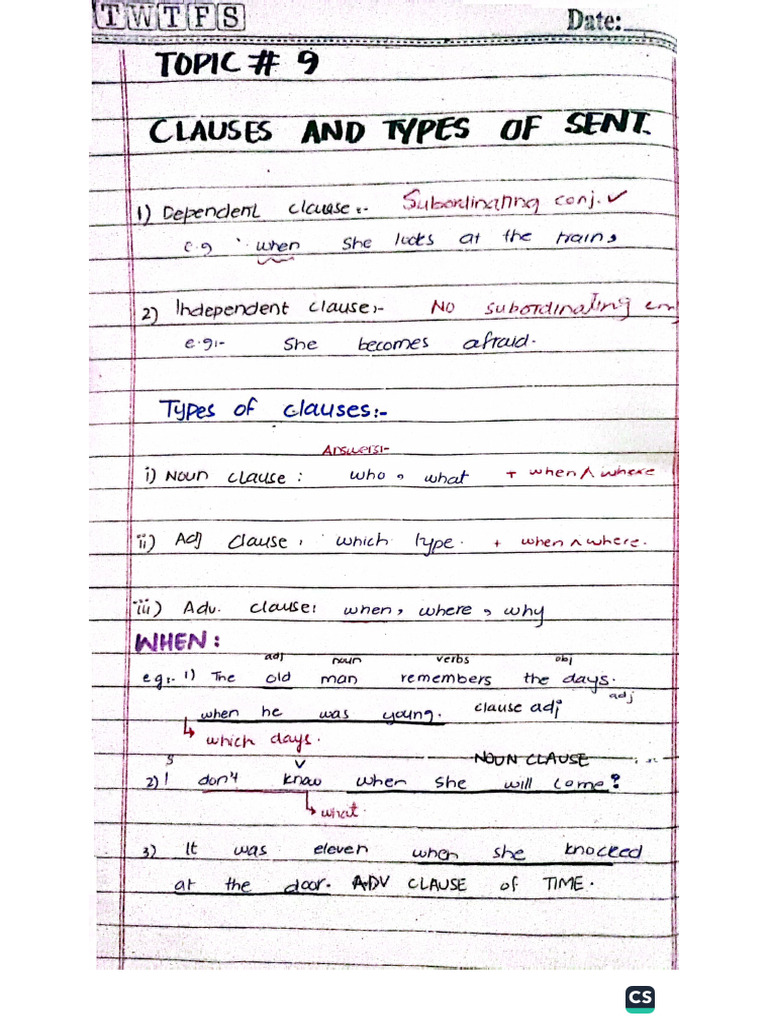 T W T F S Date:
TOPIC # 9
CLAUSES AND TYPES OF SENT.
1) Dependent clause:- Subordinating conj. ✓
e.g when she looks at the train,
2) Independent clause:- No subordinating conj
e.g:- She becomes afraid.
Types of clauses:-
Answers:-
i) Noun clause : who, what + when ∧ where
ii) Adj clause : which type. + when ∧ where.
iii) Adv. clause: when, where, why
WHEN:
adj noun verbs obj
eg:- 1) The old man remembers the days.
adj
when he was young. clause adj
↳ which days.
S V NOUN CLAUSE
2) I don't know when she will come?
↳ what.
3) It was eleven when she knocked
at the door. ADV CLAUSE of TIME.
CS